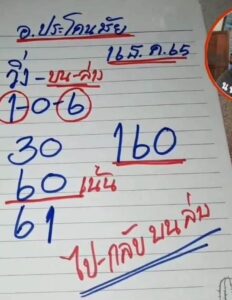 อ.ประโคนชัย
16 ส.ค.65
วิ่ง-บน-ล่าง
1-0-6
30 160
60 เน้น
61
ไป-กลับ บน ล่าง